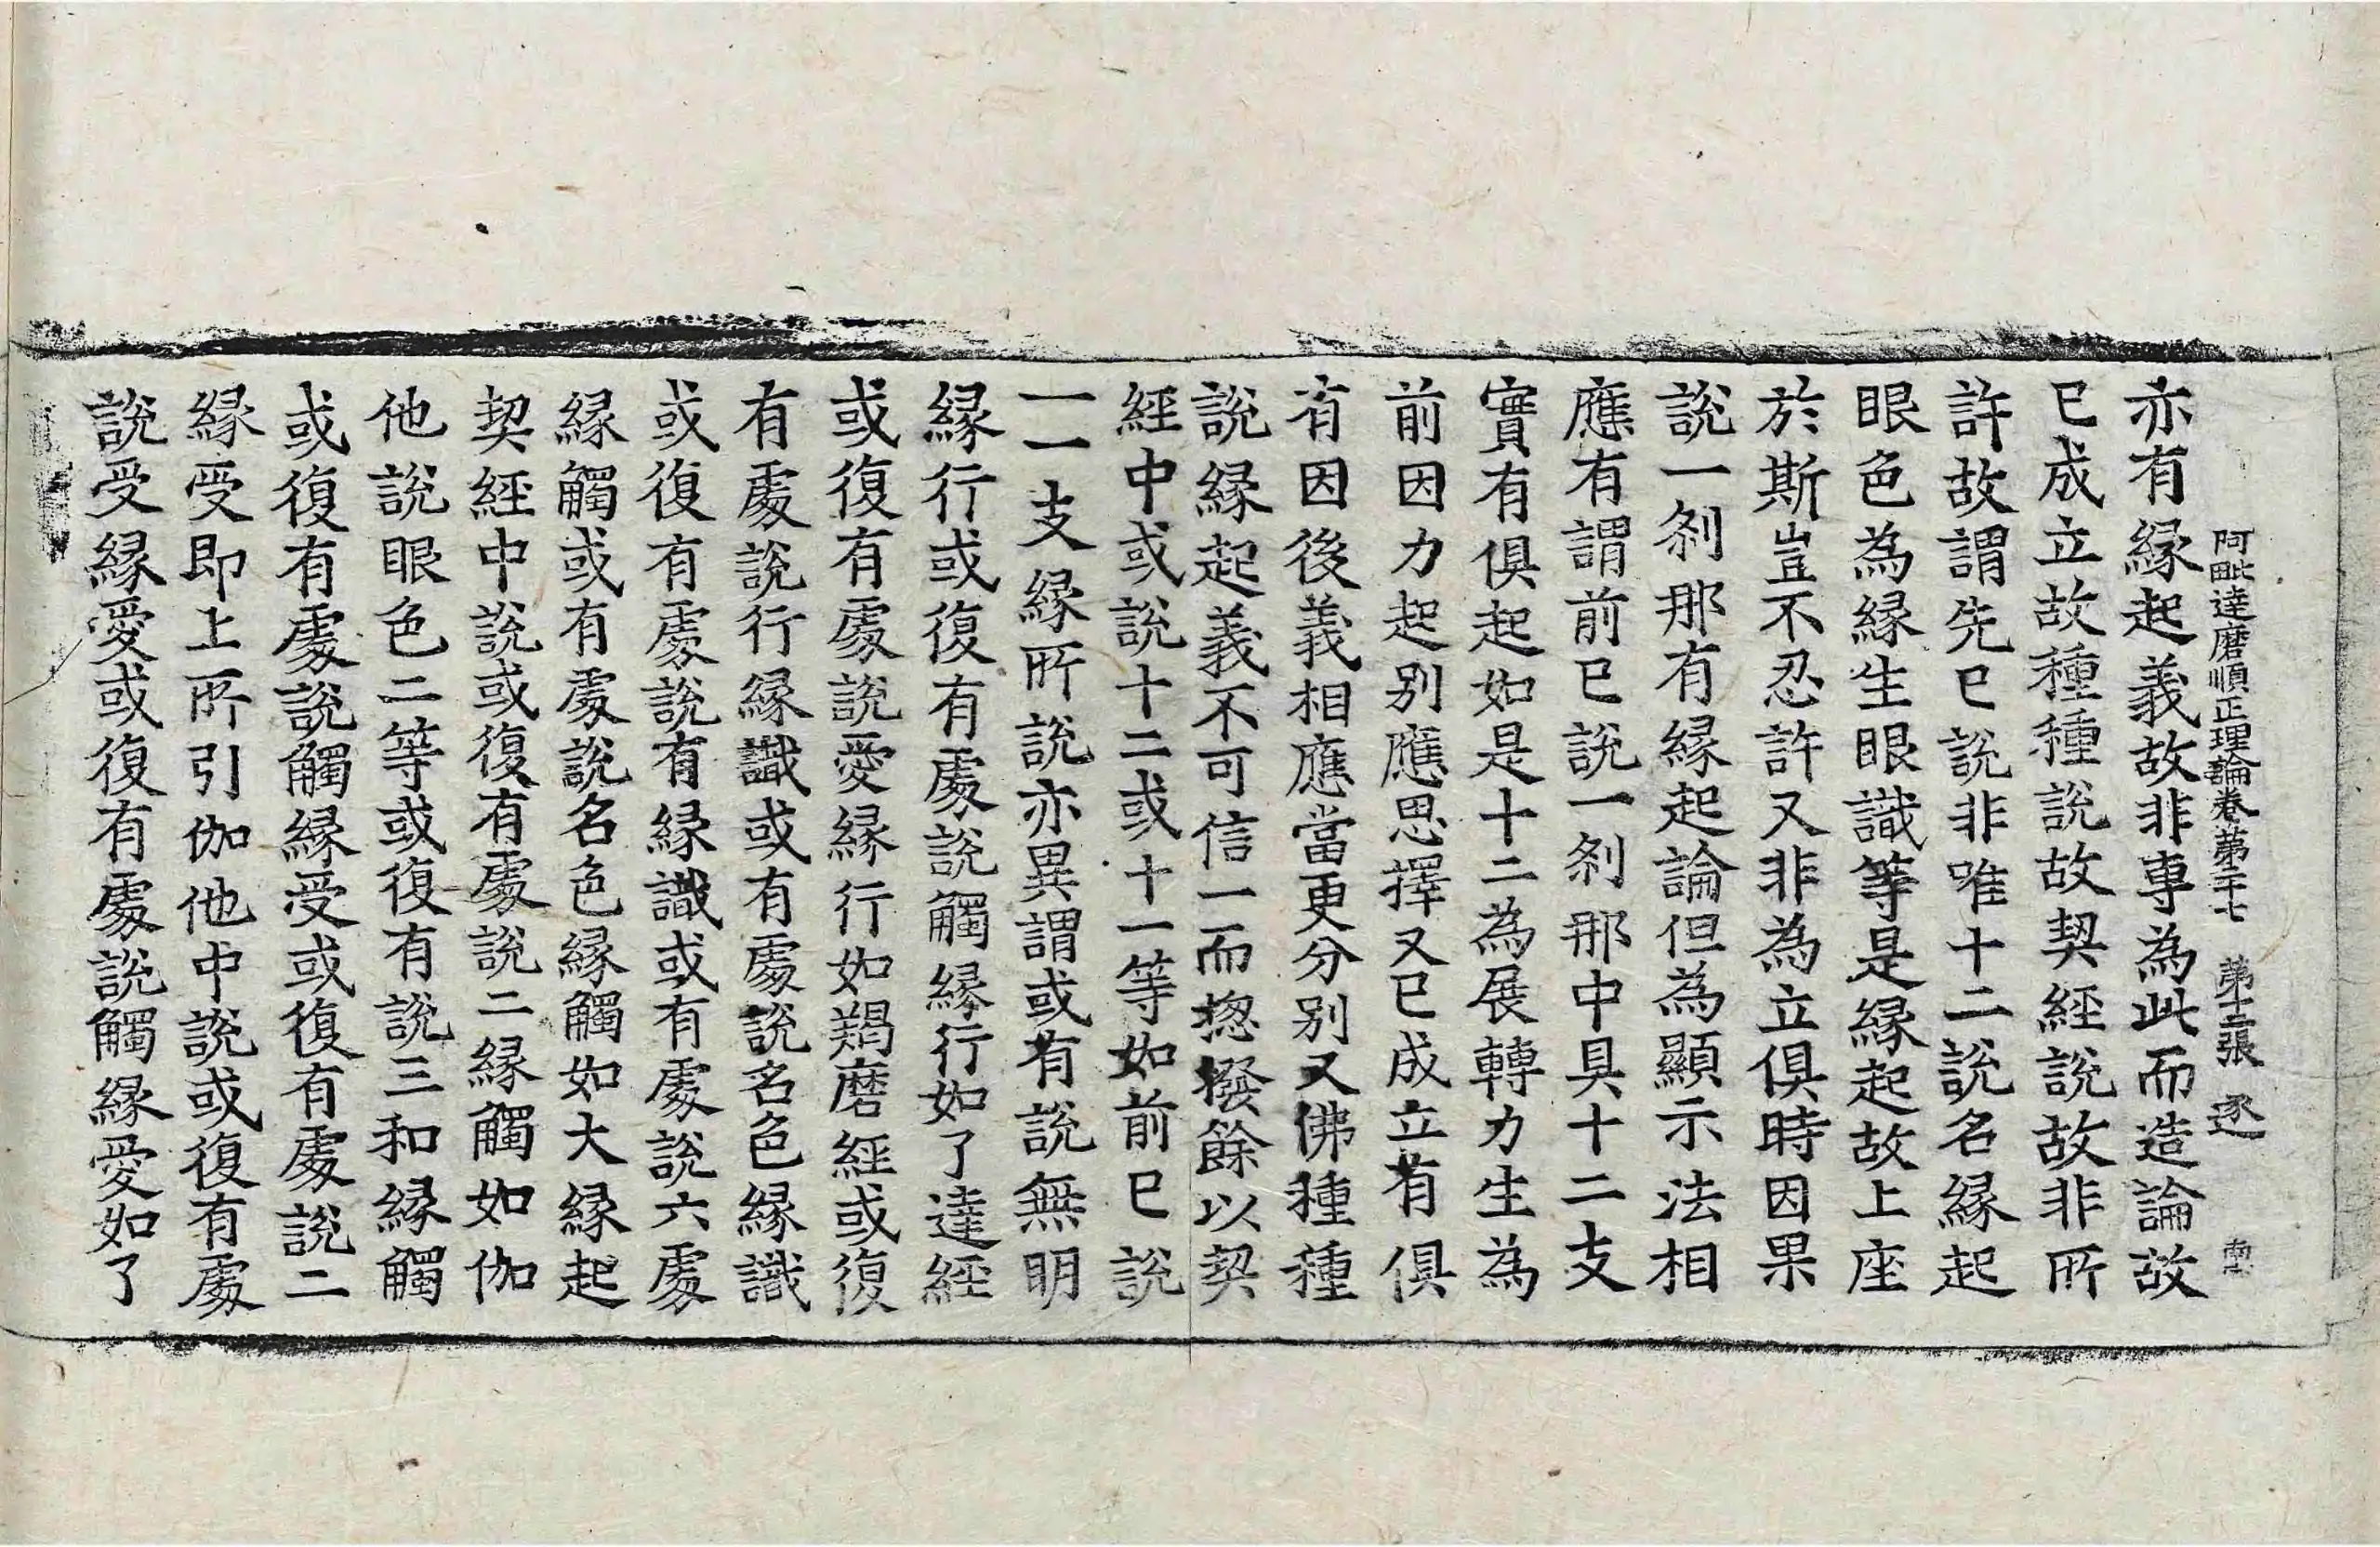 阿毗達磨順正理論卷第二十七 第十二張 逐
亦有緣起義故非專為此而造論故
已成立故種種說故契經說故非所
許故謂先已說非唯十二說名緣起
眼色為緣生眼識等是緣起故上座
於斯豈不忍許又非為立俱時因果
說一剎那有緣起論但為顯示法相
應有謂前已說一剎那中具十二支
實有俱起如是十二為展轉力生為
前因力起別應思擇又已成立有俱
有因後義相應當更分別又佛種種
說緣起義不可信一而捴撥餘以契
經中或說十二或十一等如前已說
一一支緣所說亦異謂或有說無明
緣行或復有處說觸緣行如了達經
或復有處說愛緣行如羯磨經或復
有處說行緣識或有處說名色緣識
或復有處說有緣識或有處說六處
緣觸或有處說名色緣觸如大緣起
契經中說或復有處說二緣觸如伽
他說眼色二等或復有說三和緣觸
或復有處說觸緣受或復有處說二
緣受即上所引伽他中說或復有處
說受緣愛或復有處說觸緣愛如了